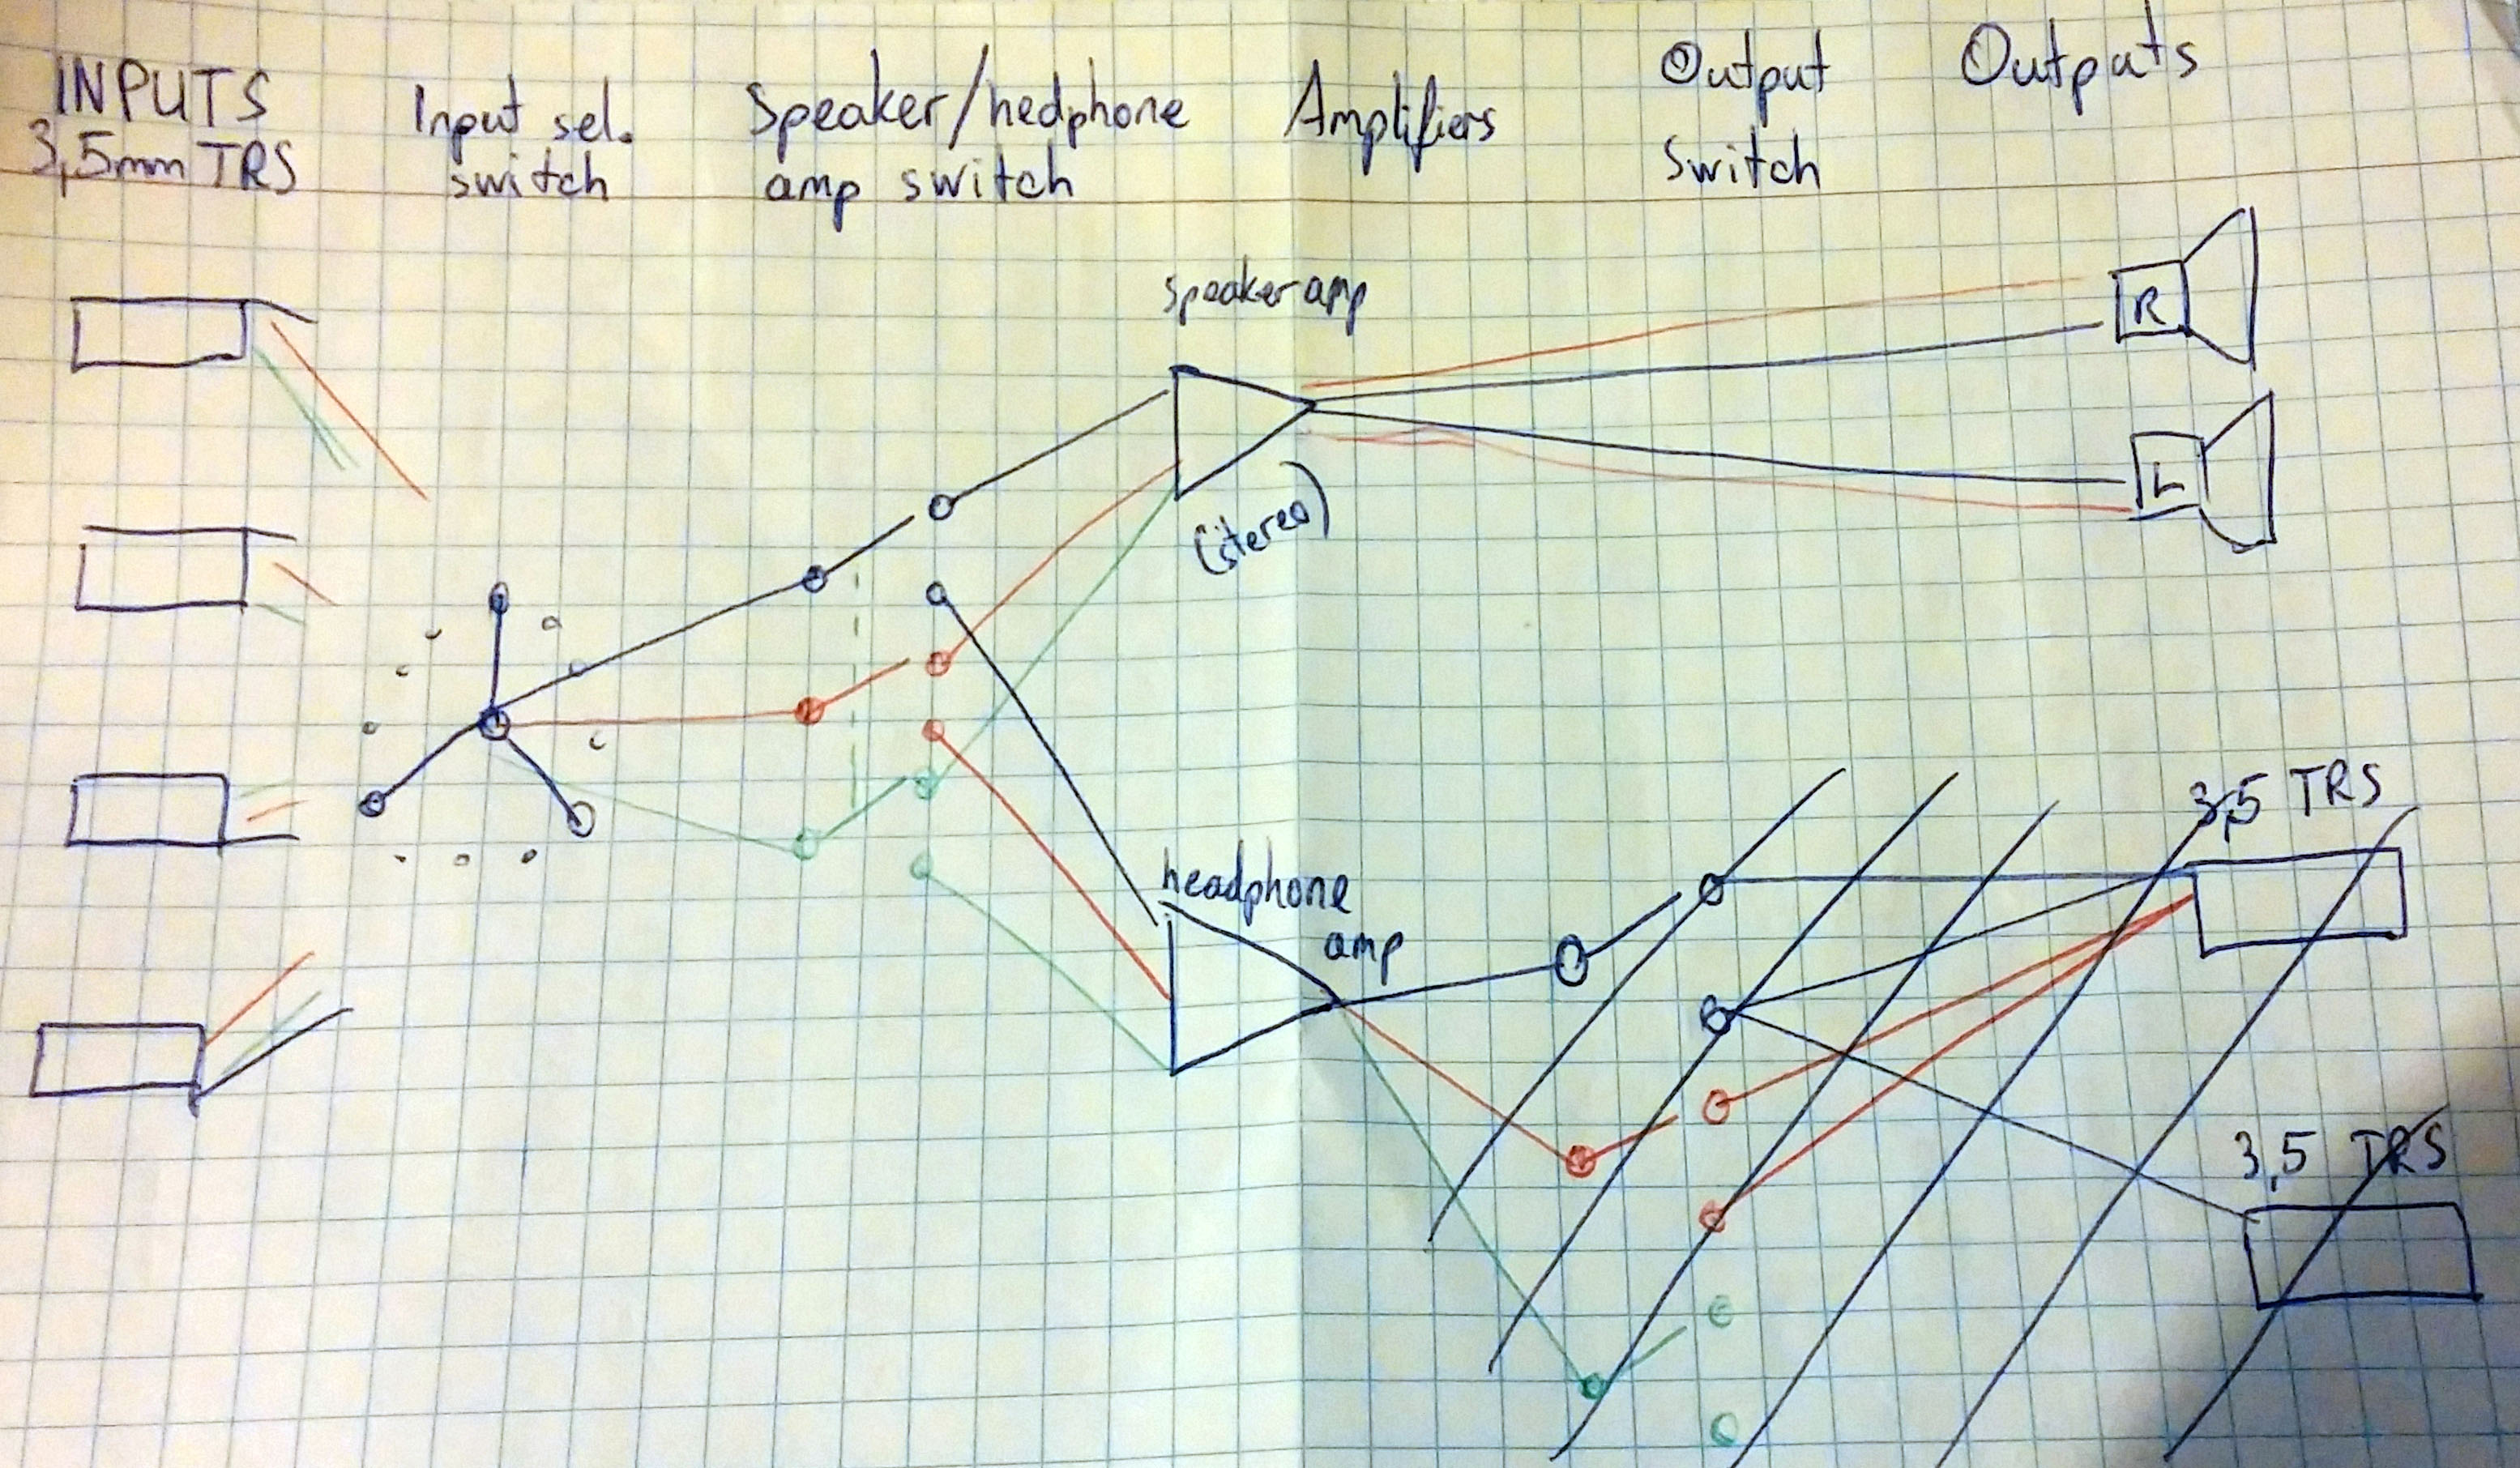 INPUTS
3,5mm TRS
Input sel.
switch
Speaker/hedphone
amp switch
Amplifiers
Output
Switch
Outputs
speaker amp
(stereo)
R
L
headphone
amp
3,5 TRS
3,5 TRS